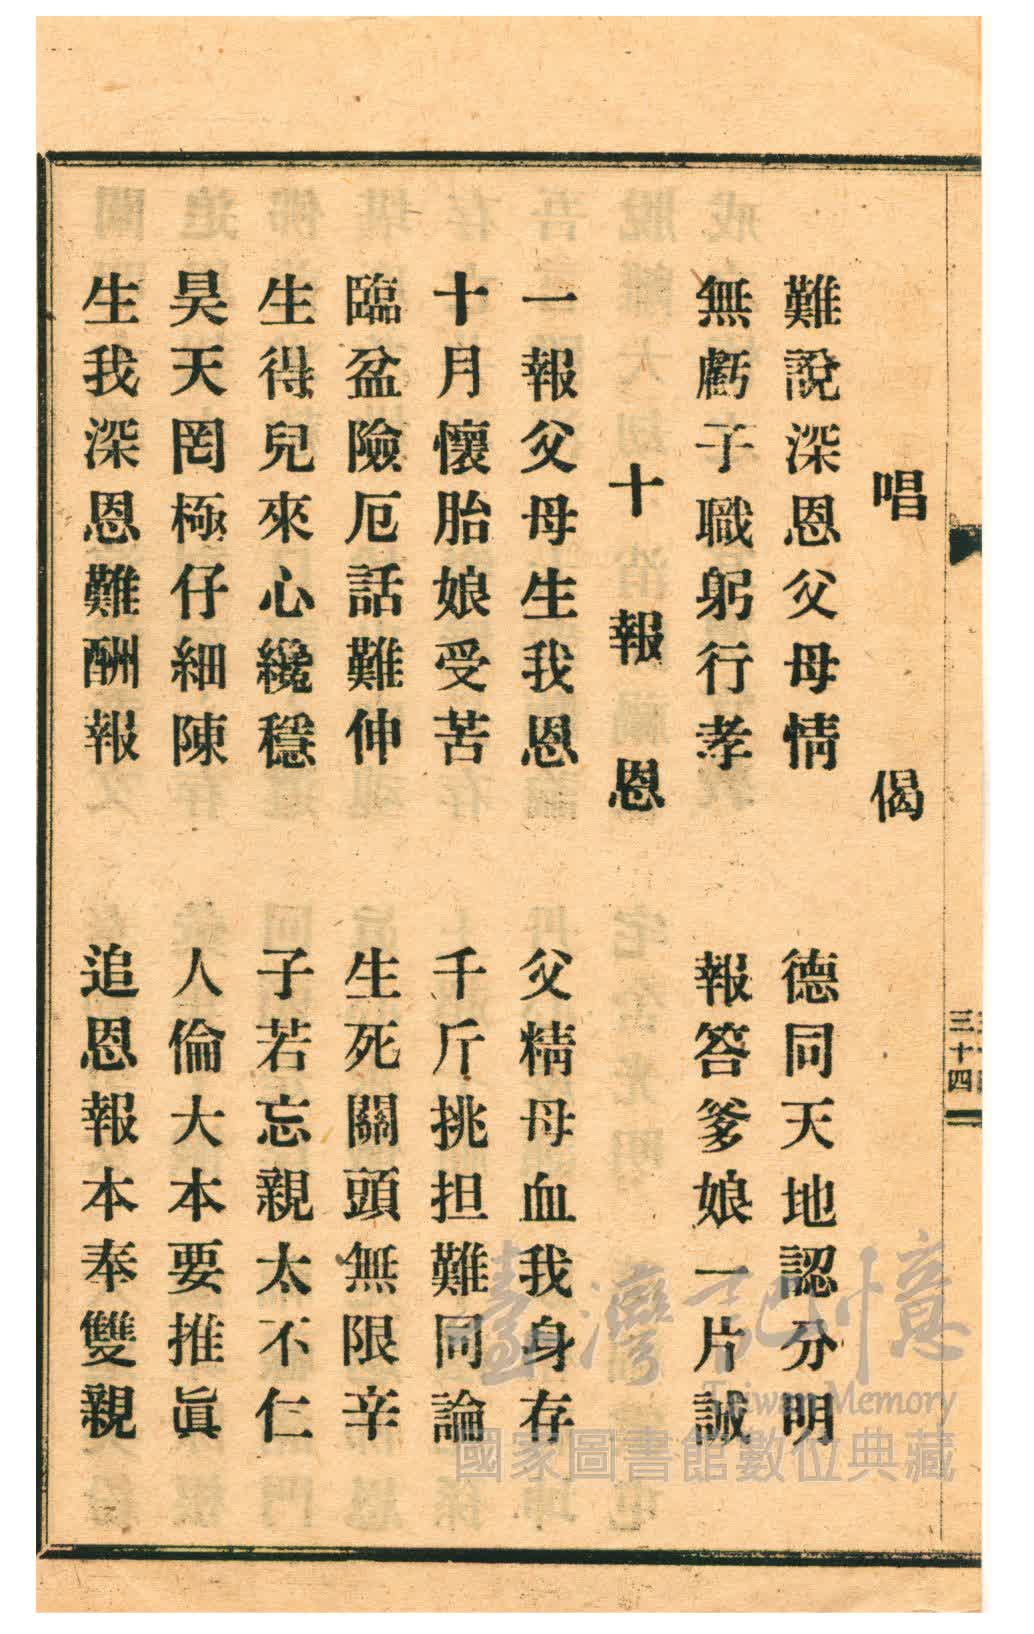 唱偈
難說深恩父母情　德同天地認分明
無虧子職躬行孝　報答爹娘一片誠
十報恩
一報父母生我恩　父精母血我身存
十月懷胎娘受苦　千斤挑担難同論
臨盆險厄話難伸　生死關頭無限辛
生得兒來心纔穩　子若忘親太不仁
昊天罔極仔細陳　人倫大本要推眞
生我深恩難酬報　追恩報本奉雙親
三十四
臺灣記憶
Taiwan Memory
國家圖書館數位典藏